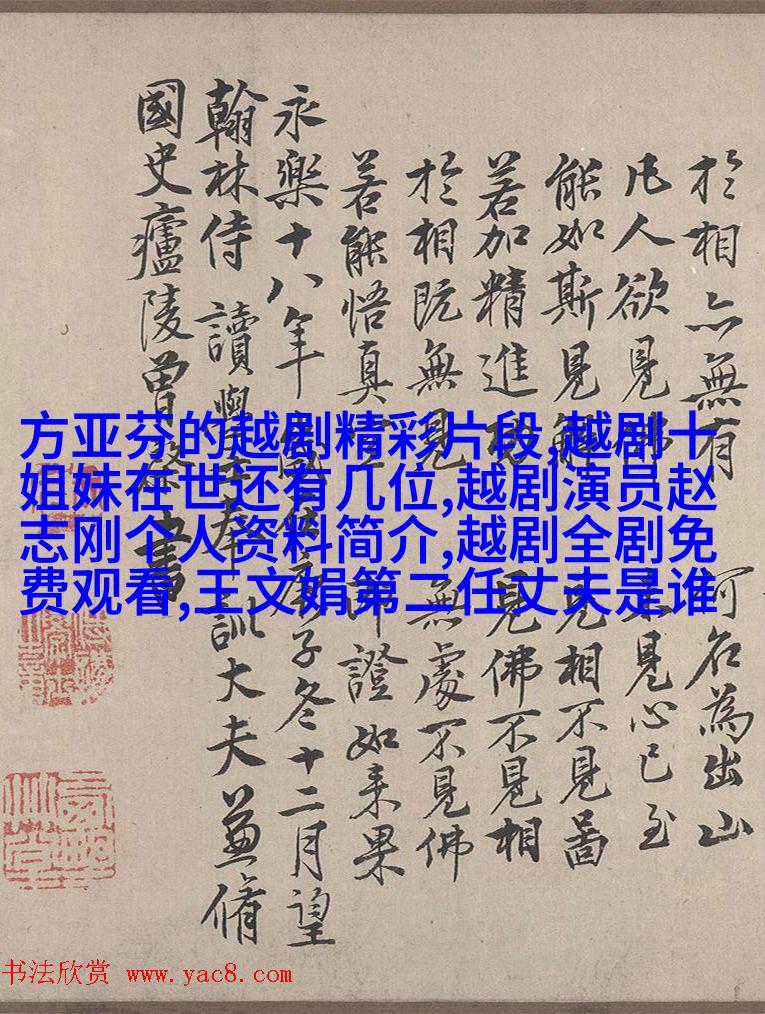 於相亦無有 何名為出山
凡人欲見佛 見心已至
能如斯見解 見相不見啚
若加精進 見佛不見相
於相既無見 無處不見佛
若能悟真 證如来果
永樂十八年 子冬十二月望
翰林侍讀學 奉訓大夫兼脩
國史廬陵曾棨書
方亚芬的越剧精彩片段,越剧十
姐妹在世还有几位,越剧演员赵
志刚个人资料简介,越剧全剧免
费观看,王文娟第二任丈夫是谁
书法欣赏 www.yac8.com